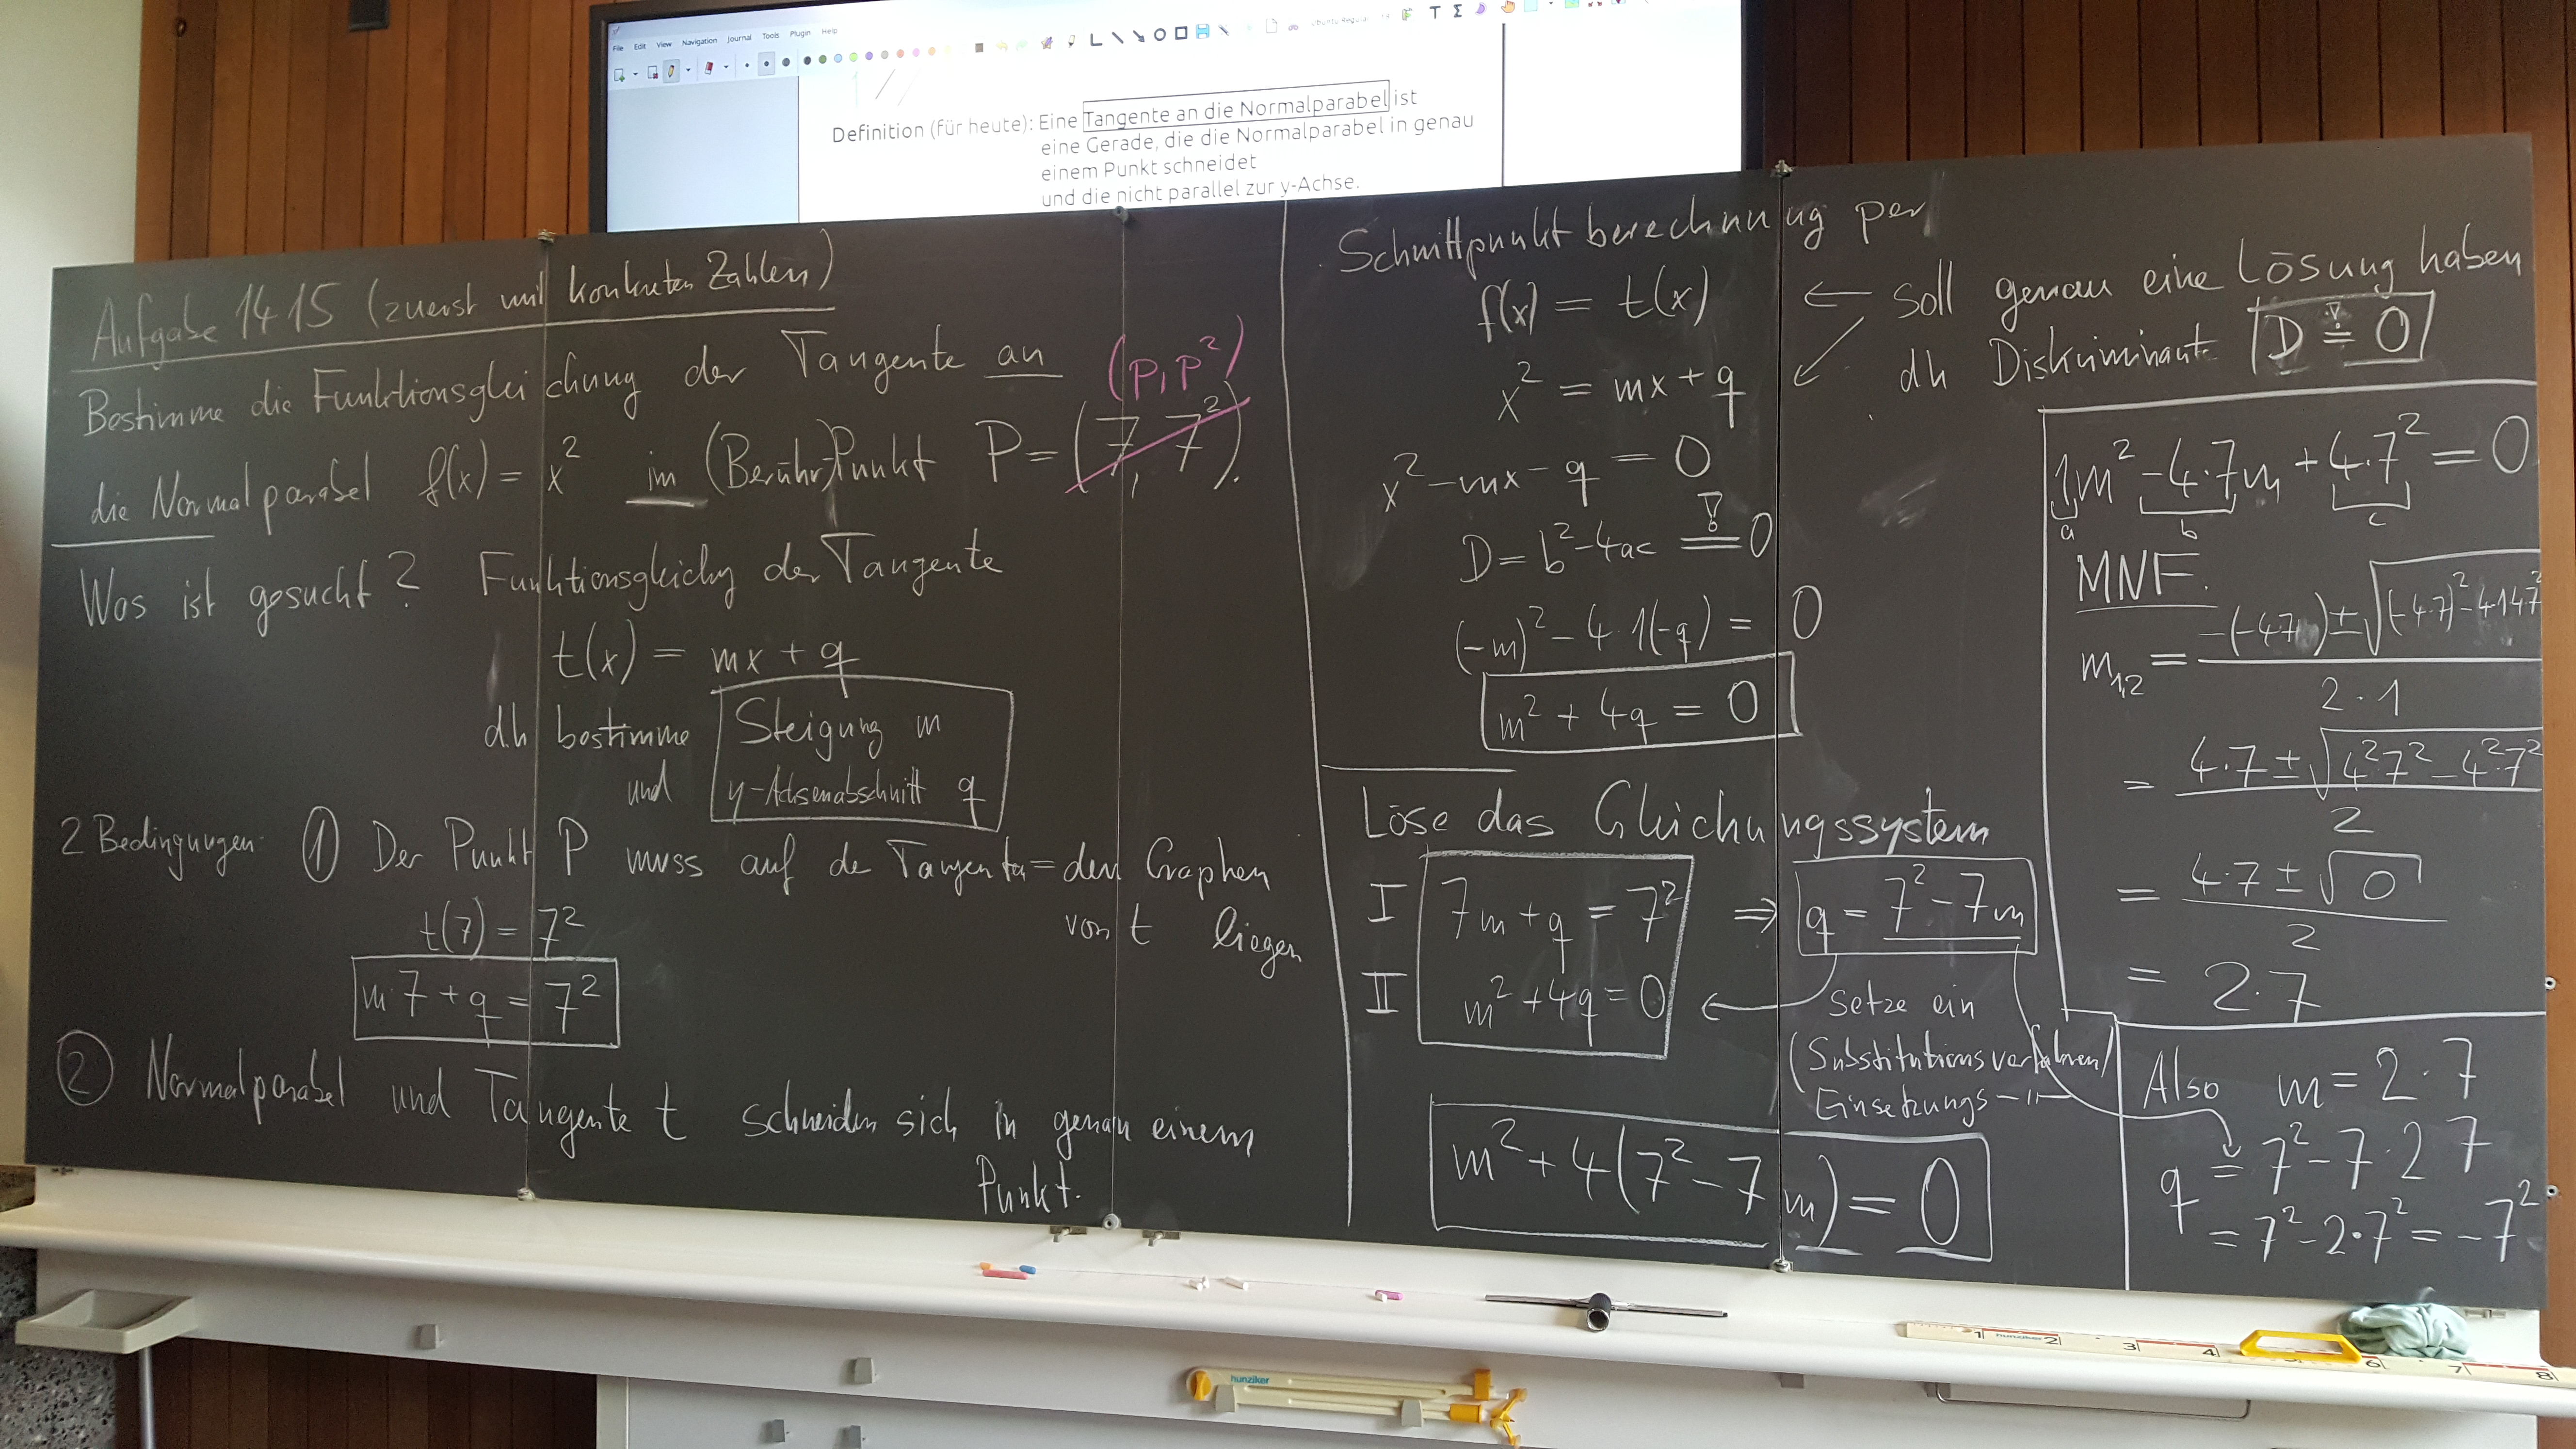 File Edit View Navigation Journal Tools Plugin Help
Definition (für heute): Eine Tangente an die Normalparabel ist
eine Gerade, die die Normalparabel in genau
einem Punkt schneidet
und die nicht parallel zur y-Achse.
Aufgabe 14.15 (zuerst mit konkreten Zahlen)
Bestimme die Funktionsgleichung der Tangente an (p, p²)
die Normalparabel f(x) = x² im (Berühr)Punkt P = (7, 7²).
Was ist gesucht? Funktionsgleichg der Tangente
t(x) = mx + q
dh bestimme Steigung m
und y-Achsenabschnitt q
2 Bedingungen: ① Der Punkt P muss auf de Tangente = den Graphen
von t liegen
t(7) = 7²
m·7 + q = 7²
② Normalparabel und Tangente t schneiden sich in genau einem
Punkt.
Schnittpunktberechnung per
f(x) = t(x) ← soll genau eine Lösung haben
x² = mx + q ↙ dh Diskriminante D ≟ 0
x² - mx - q = 0
D = b² - 4ac = 0
!
(-m)² - 4·1(-q) = 0
m² + 4q = 0
Löse das Gleichungssystem
I 7m + q = 7² ⇒ q = 7² - 7m
II m² + 4q = 0 ← setze ein
(Substitutionsverfahren)
Einsetzungs -"-
m² + 4(7² - 7m) = 0
1m² - 4·7m + 4·7² = 0
a b c
MNF.
m₁,₂ = -(-4·7) ± √(-4·7)² - 4·1·4·7²
2·1
= 4·7 ± √4²7² - 4²·7²
2
= 4·7 ± √0
2
= 2·7
Also m = 2·7
q = 7² - 7·2·7
= 7² - 2·7² = -7²
hunziker
1 hunziker 2 3 4 5 6 7 8